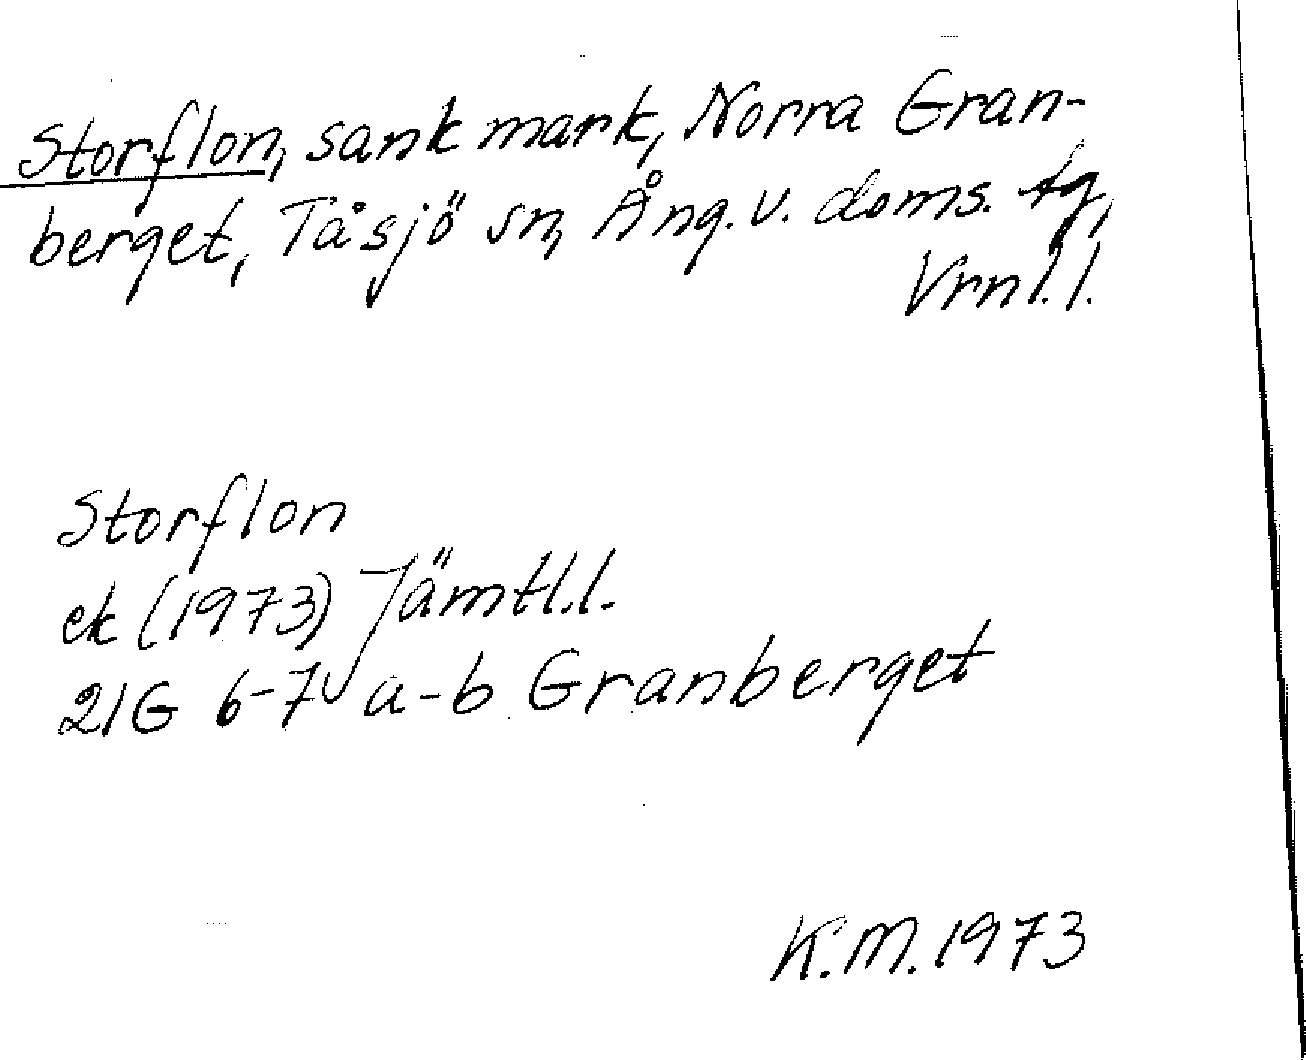 Storflon, sank mark, Norra Gran-
berget, Tåsjö sn, Ång. v. doms. tg,
Vrnl.l.
Storflon
ek (1973) Jämtl.l.
21G 6-7 a-b Granberget
K.M. 1973